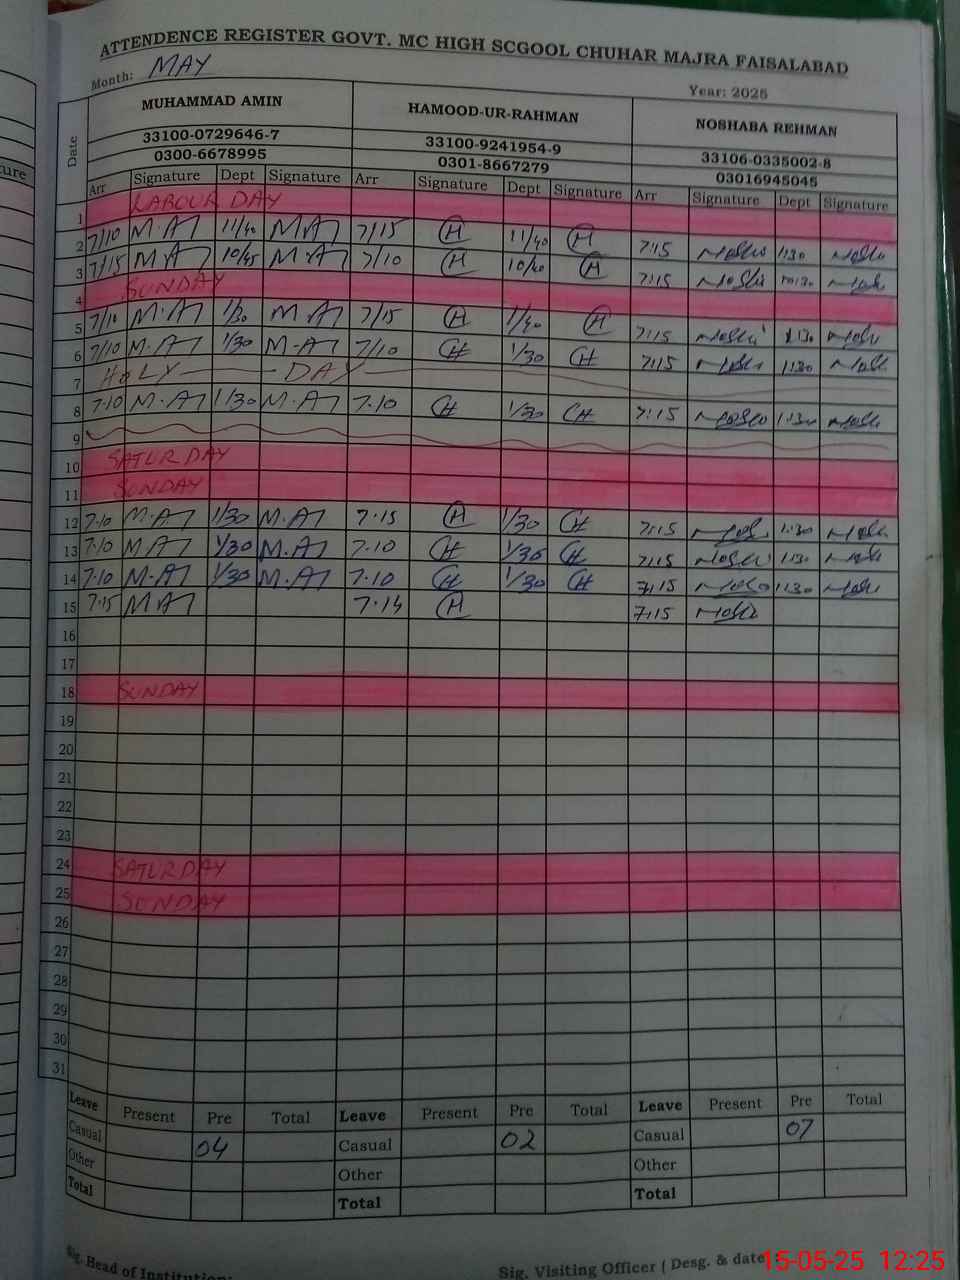 ATTENDENCE REGISTER GOVT. MC HIGH SCGOOL CHUHAR MAJRA FAISALABAD
Month: MAY Year: 2025
Date MUHAMMAD AMIN HAMOOD-UR-RAHMAN NOSHABA REHMAN
33100-0729646-7 33100-9241954-9 33106-0335002-8
0300-6678995 0301-8667279 03016945045
ure Arr Signature Dept Signature Arr Signature Dept Signature Arr Signature Dept Signature
1 LABOUR DAY
2 7/10 M.A 11/40 M.A 7/15 H 11/40 H 7:15 1:30
3 7/15 M.A 10/45 M.A 7/10 H 10/40 H 7:15
4 SUNDAY
5 7/10 M.A 1/30 M.A 7/15 H 1/40 H 7:15 1:30
6 7/10 M.A 1/30 M.A 7/10 H 1/30 H 7:15 1:30
7 HOLY DAY
8 7.10 M.A 1/30 M.A 7.10 H 1/30 H 7:15 1:30
9
10 SATURDAY
11 SUNDAY
12 7.10 M.A 1/30 M.A 7.15 H 1/30 H 7:15 1:30
13 7.10 M.A 1/30 M.A 7.10 H 1/30 H 7:15 1:30
14 7.10 M.A 1/30 M.A 7.10 H 1/30 H 7:15 1:30
15 7.15 M.A 7.14 H 7:15
16
17
18 SUNDAY
19
20
21
22
23
24 SATURDAY
25 SUNDAY
26
27
28
29
30
31
Leave Present Pre Total Leave Present Pre Total Leave Present Pre Total
Casual 04 Casual 02 Casual 07
Other Other Other
Total Total Total
Sig. Head of Institution: Sig. Visiting Officer ( Desg. & date)
15-05-25 12:25